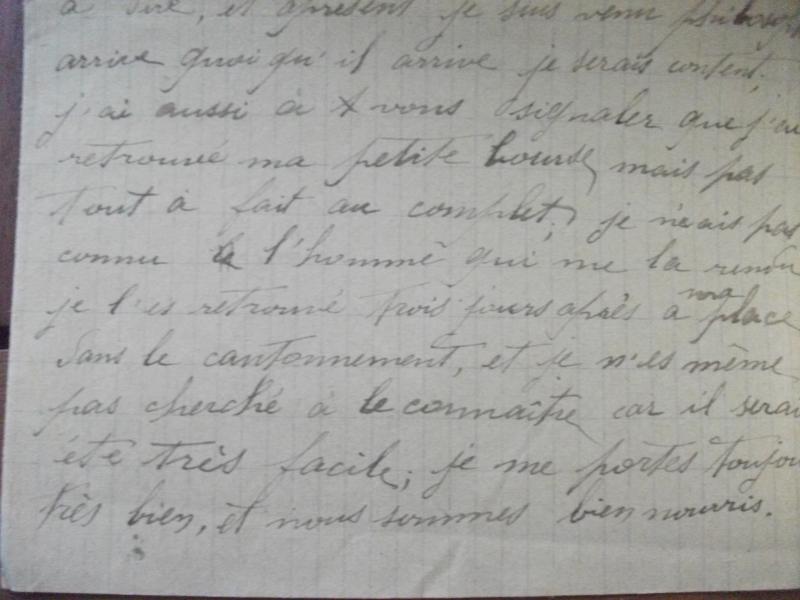 à dire, et apresent je suis venu philosoph
arrive quoi qu'il arrive je serais content.
j'ai aussi à vous signaler que j'ai
retrouvé ma petite bourse, mais pas
tout à fait au complet; je n'eais pas
connu l'homme qui me la rendu
je l'es retrouvé trois jours après à ma place
dans le cantonnement, et je n'es même
pas cherché à le connaître car il serai
été très facile; je me portes toujou
très bien, et nous sommes bien nourris.